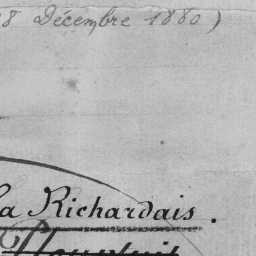 8 Décembre 1880)
La Richardais.